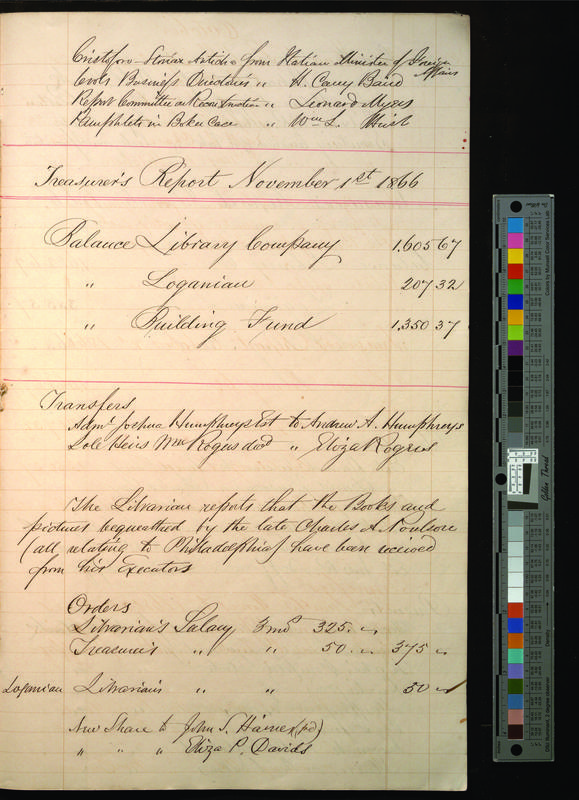 Cristoforo Storiax Antichi from Italian Minister of Foreign Affairs
Cooks Business Directories " H. Carey Baird
Report Committee on Reconstruction " Leonard Myers
Pamphlets in Baker Case " Wm L. Hirst
Treasurer's Report November 1st 1866
Balance Library Company 1.605 67
" Loganian 207 32
" Building Fund 1.350 37
Transfers
Admr Joshua Humphreys Est to Andrew A. Humphreys
Sole Heirs Wm Rogers decd " Eliza Rogers
The Librarian reports that the Books and
pictures bequeathed by the late Charles A. Poulson
(all relating to Philadelphia) have been received
from his Executors
Orders
Librarian's Salary 3 mos 325. "
Treasurer's " " 50. " 375 "
Loganian Librarian's " " 50 "
New Share to John S. Haines (pd)
" " " Eliza P. Davids